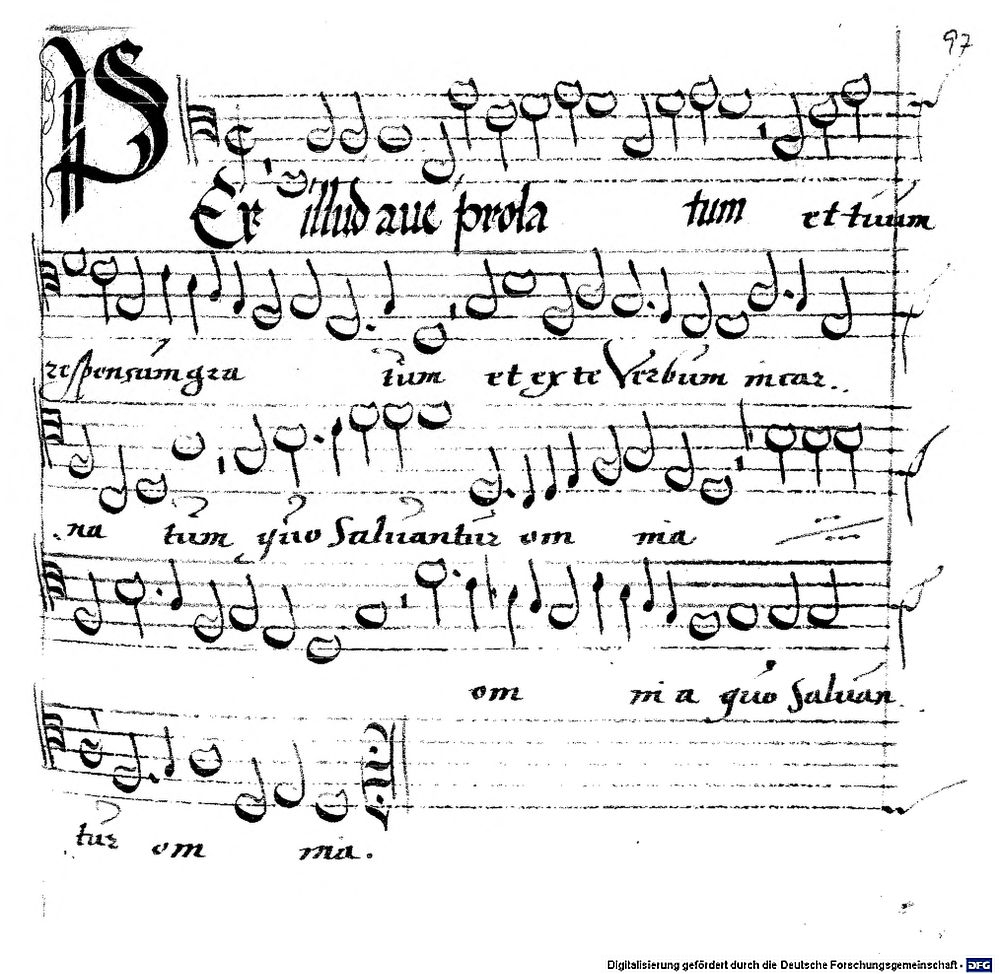 97
Per illud ave prola tum et tuum
responsum gra tum et ex te Verbum incar.
na tum quo Salvantur om nia
om ni a quo Salvan
tur om nia.
Digitalisierung gefördert durch die Deutsche Forschungsgemeinschaft - DFG